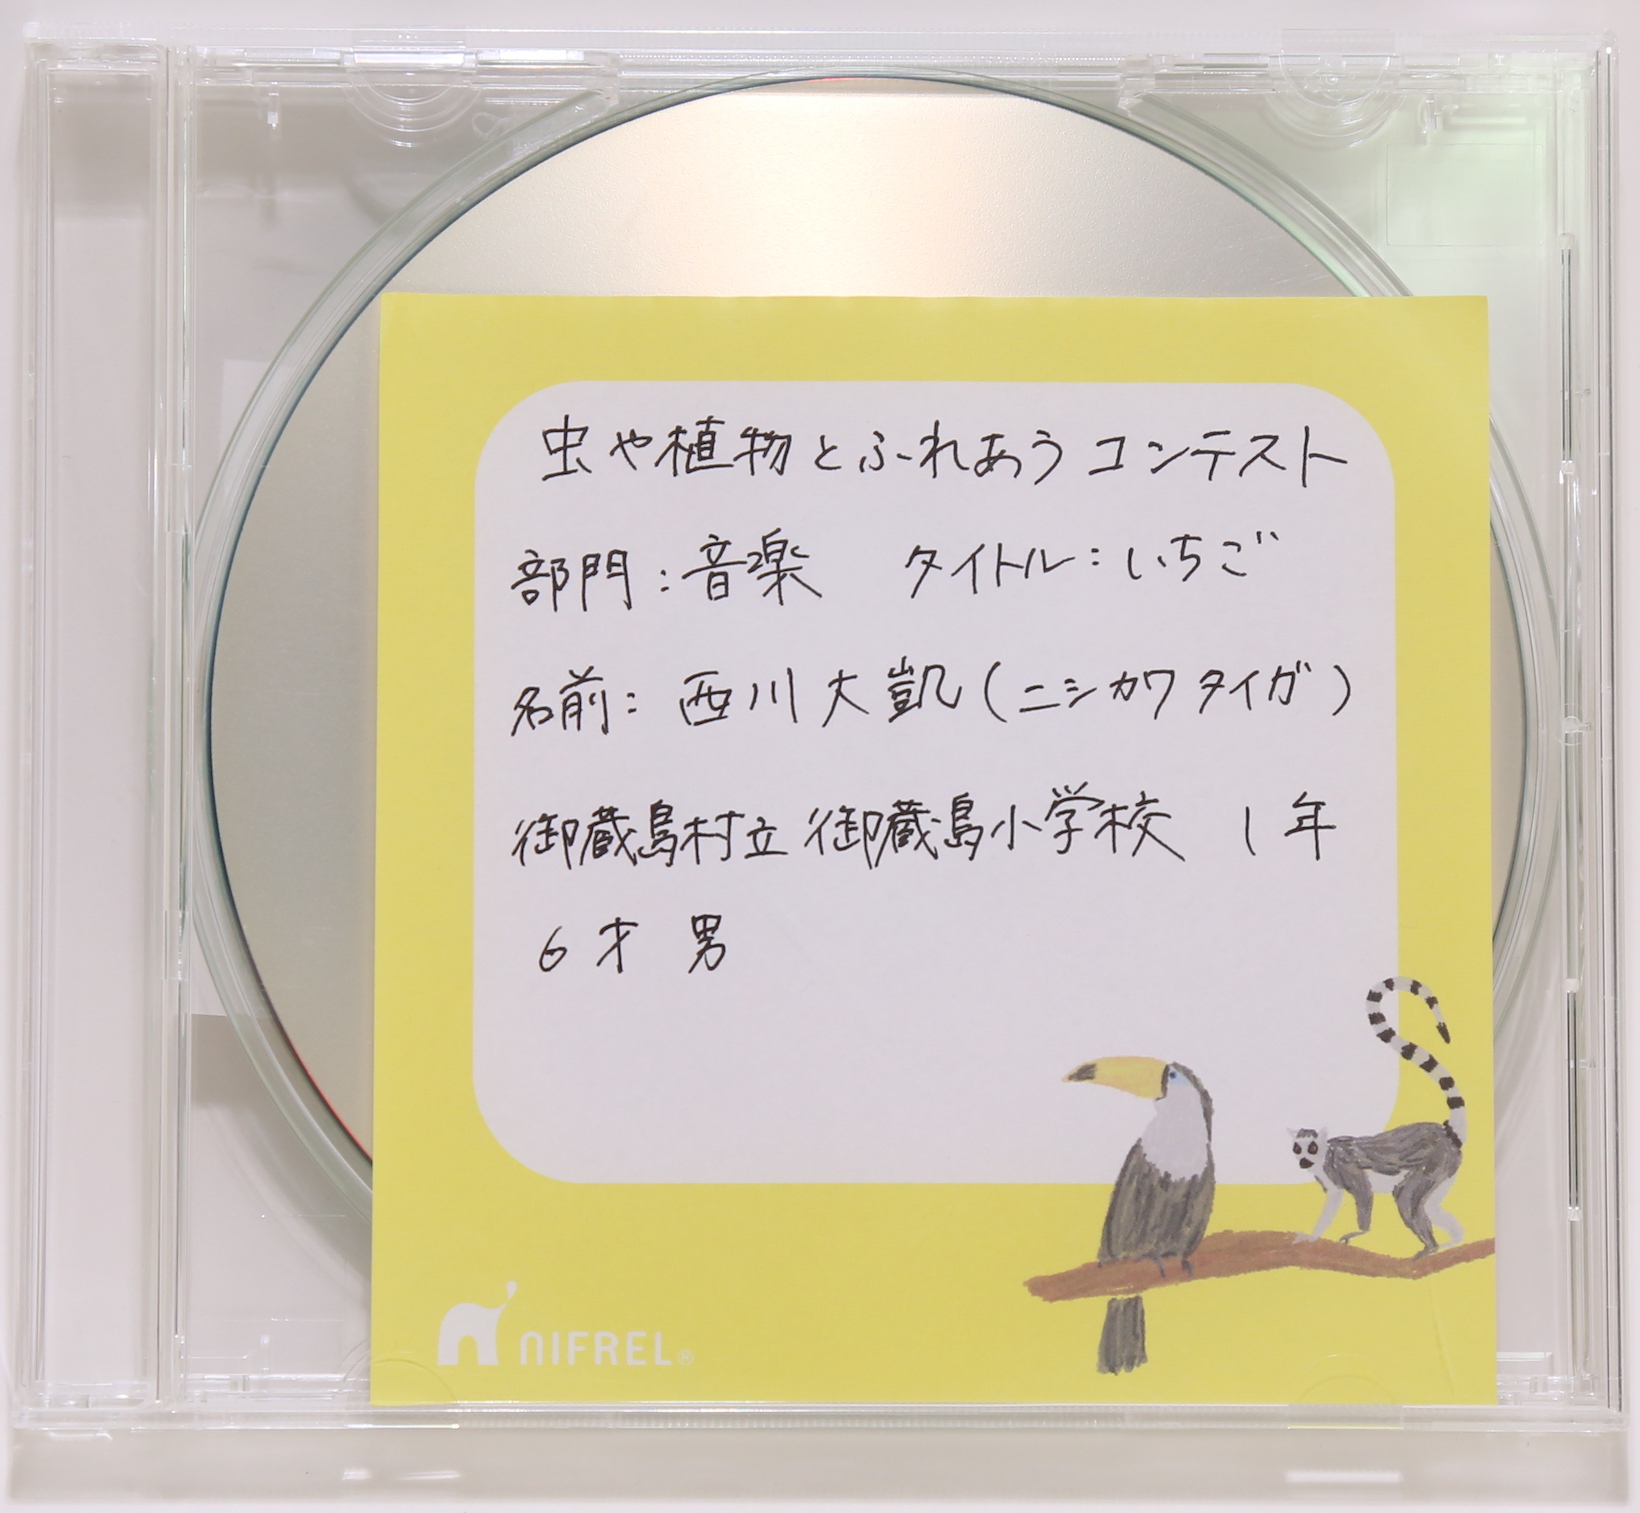 虫や植物とふれあうコンテスト
部門:音楽　タイトル:いちご
名前:西川大凱(ニシカワタイガ)
御蔵島村立御蔵島小学校　1年
6才　男
NIFREL®